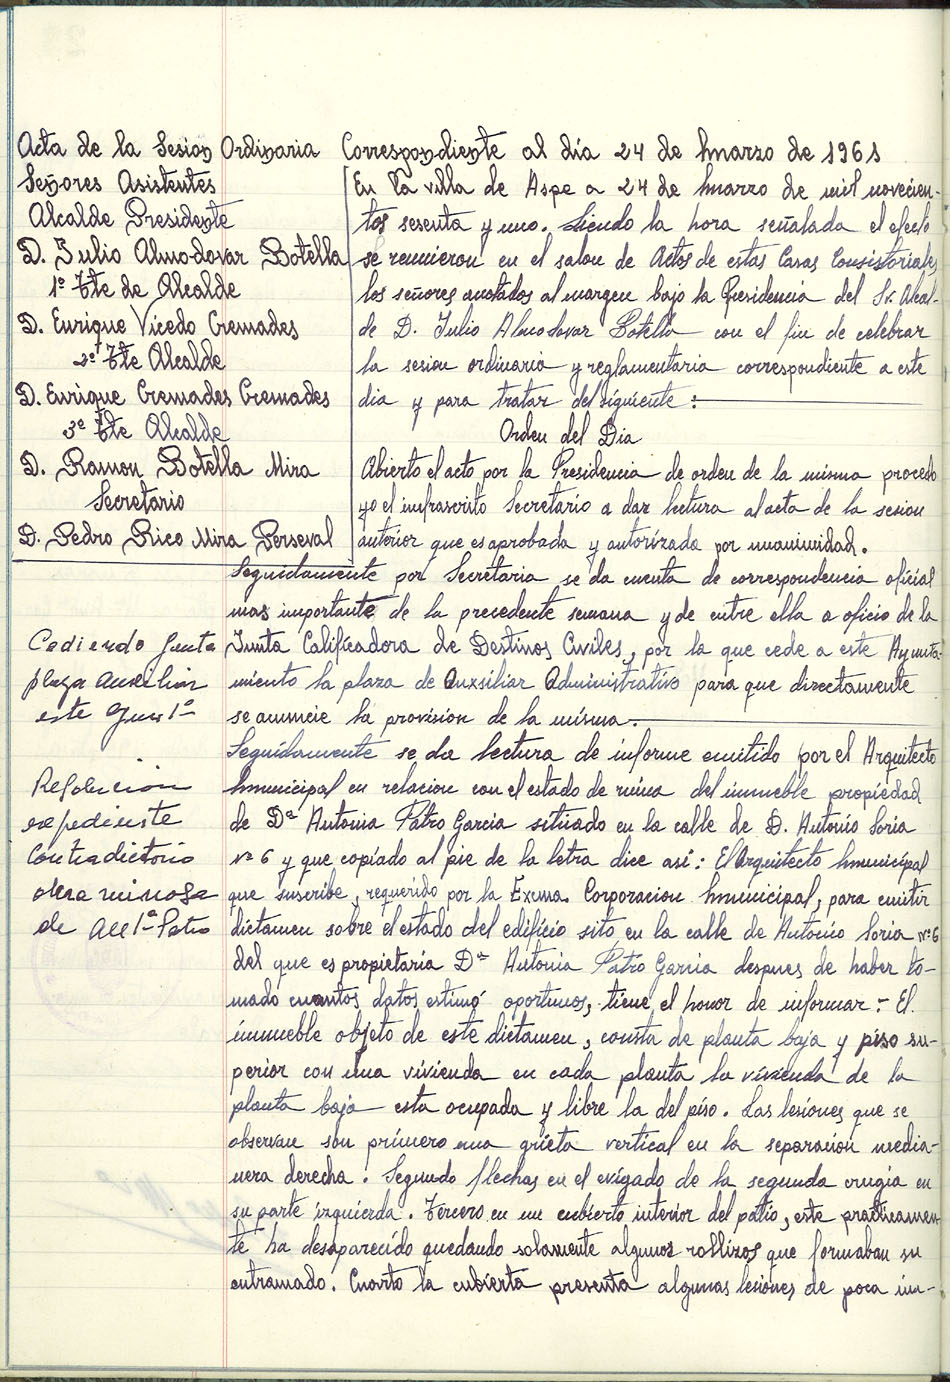 Acta de la Sesion Ordinaria Correspondiente al día 24 de marzo de 1961
Señores Asistentes
Alcalde Presidente
D. Julio Almodovar Botella
1º Tte de Alcalde
D. Enrique Vicedo Cremades
2º Tte Alcalde
D. Enrique Cremades Cremades
3º Tte Alcalde
D. Ramon Botella Mira
Secretario
D. Pedro Rico Mira Perseval
En la villa de Aspe a 24 de marzo de mil novecien-
tos sesenta y uno. Siendo la hora señalada el efecto
se reunieron en el salon de Actos de estas Casas Consistoriales
los señores anotados al margen bajo la Presidencia del Sr. Alcal-
de D. Julio Almodovar Botella con el fin de celebrar
la sesion ordinaria y reglamentaria correspondiente a este
dia y para tratar del siguiente:
Orden del Dia
Abierto el acto por la Presidencia de orden de la misma procedo
yo el infrascrito Secretario a dar lectura al acta de la sesion
anterior que es aprobada y autorizada por unanimidad.
Seguidamente por Secretaria se da cuenta de correspondencia oficial
mas importante de la precedente semana y de entre ella a oficio de la
Junta Calificadora de Destinos Civiles, por la que cede a este Ayunta-
miento la plaza de Auxsiliar Administrativo para que directamente
se anuncie la provision de la misma.
Cediendo Junta
plaza Auxiliar
este
Seguidamente se da lectura de informe emitido por el Arquitecto
Municipal en relacion con el estado de ruina del inmueble propiedad
de Dª Antonia Patro Garcia situado en la calle de D. Antonio Soria
nº 6 y que copiado al pie de la letra dice asi: El Arquitecto Municipal
que suscribe, requerido por la Excma. Corporacion Municipal, para emitir
dictamen sobre el estado del edificio sito en la calle de Antonio Soria nº 6
del que es propietaria Dª Antonia Patro Garcia despues de haber to-
mado cuantos datos estimó oportunos, tiene el honor de informar:- El
inmueble objeto de este dictamen, consta de planta baja y piso su-
perior con una vivienda en cada planta la vivienda de la
planta baja esta ocupada y libre la del piso. Las lesiones que se
observan son primero una grieta vertical en la separacion media-
nera derecha. Segundo flechas en el evigado de la segunda crugia en
su parte izquierda. Tercero en un cubierto interior del patio, este practicamen-
te ha desaparecido quedando solamente algunos rollizos que formaban su
entramado. Cuarto la cubierta presenta algunas lesiones de poca im-
Resolucion
expediente
Contradictorio
obra ruinosa
de Patro